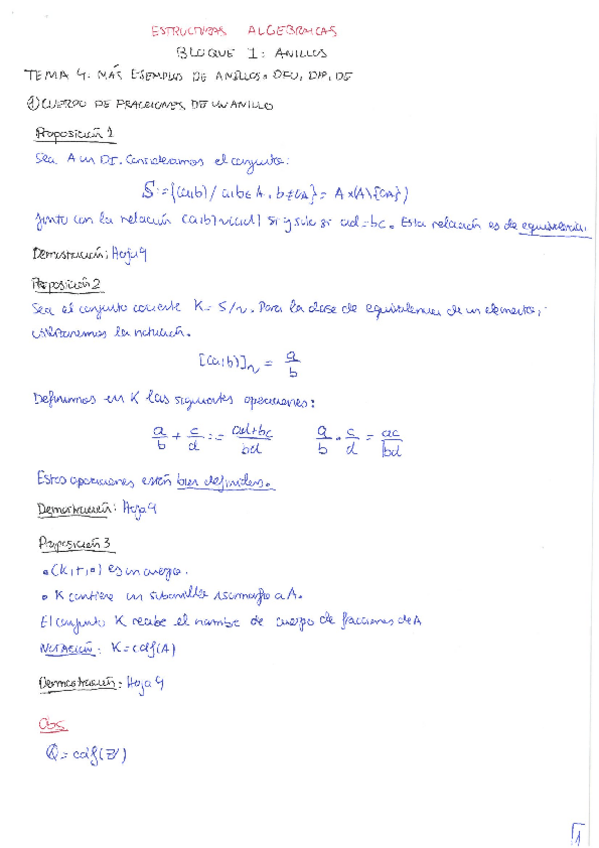 ESTRUCTURAS ALGEBRAICAS
BLOQUE 1: ANILLOS
TEMA 4. MÁS EJEMPLOS DE ANILLOS: DFU, DIP, DE
1) CUERPO DE FRACCIONES DE UN ANILLO
Proposición 1
Sea A un DI. Consideramos el conjunto:
S := {(a,b) / a,b ∈ A, b ≠ 0_A} = A × (A \ {0_A})
Junto con la relación (a,b) ~ (c,d) si y sólo si ad = bc. Esta relación es de equivalencia.
Demostración: Hoja 4
Proposición 2
Sea el conjunto cociente K = S/~. Para la clase de equivalencia de un elemento,
utilizaremos la notación.
[(a,b)]~ = a/b
Definimos en K las siguientes operaciones:
a/b + c/d := ad+bc/bd a/b · c/d = ac/bd
Estas operaciones están bien definidas.
Demostración: Hoja 4
Proposición 3
• (K,+,·) es un cuerpo.
• K contiene un subanillo isomorfo a A.
El conjunto K recibe el nombre de cuerpo de fracciones de A
NOTACIÓN: K = cdf(A)
Demostración: Hoja 4
Obs
ℚ = cdf(ℤ)
1